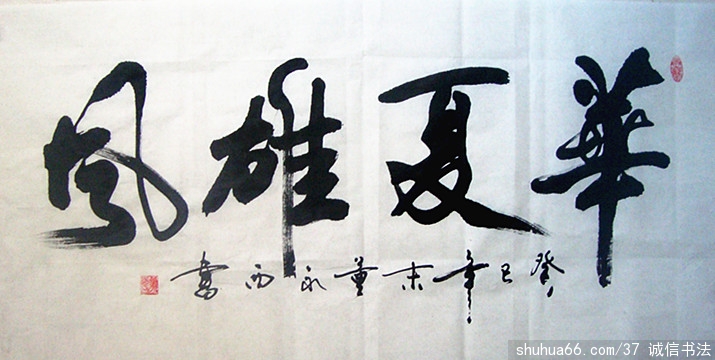 華夏雄風
癸巳年末董永西書
shuhua66.com/37 诚信书法